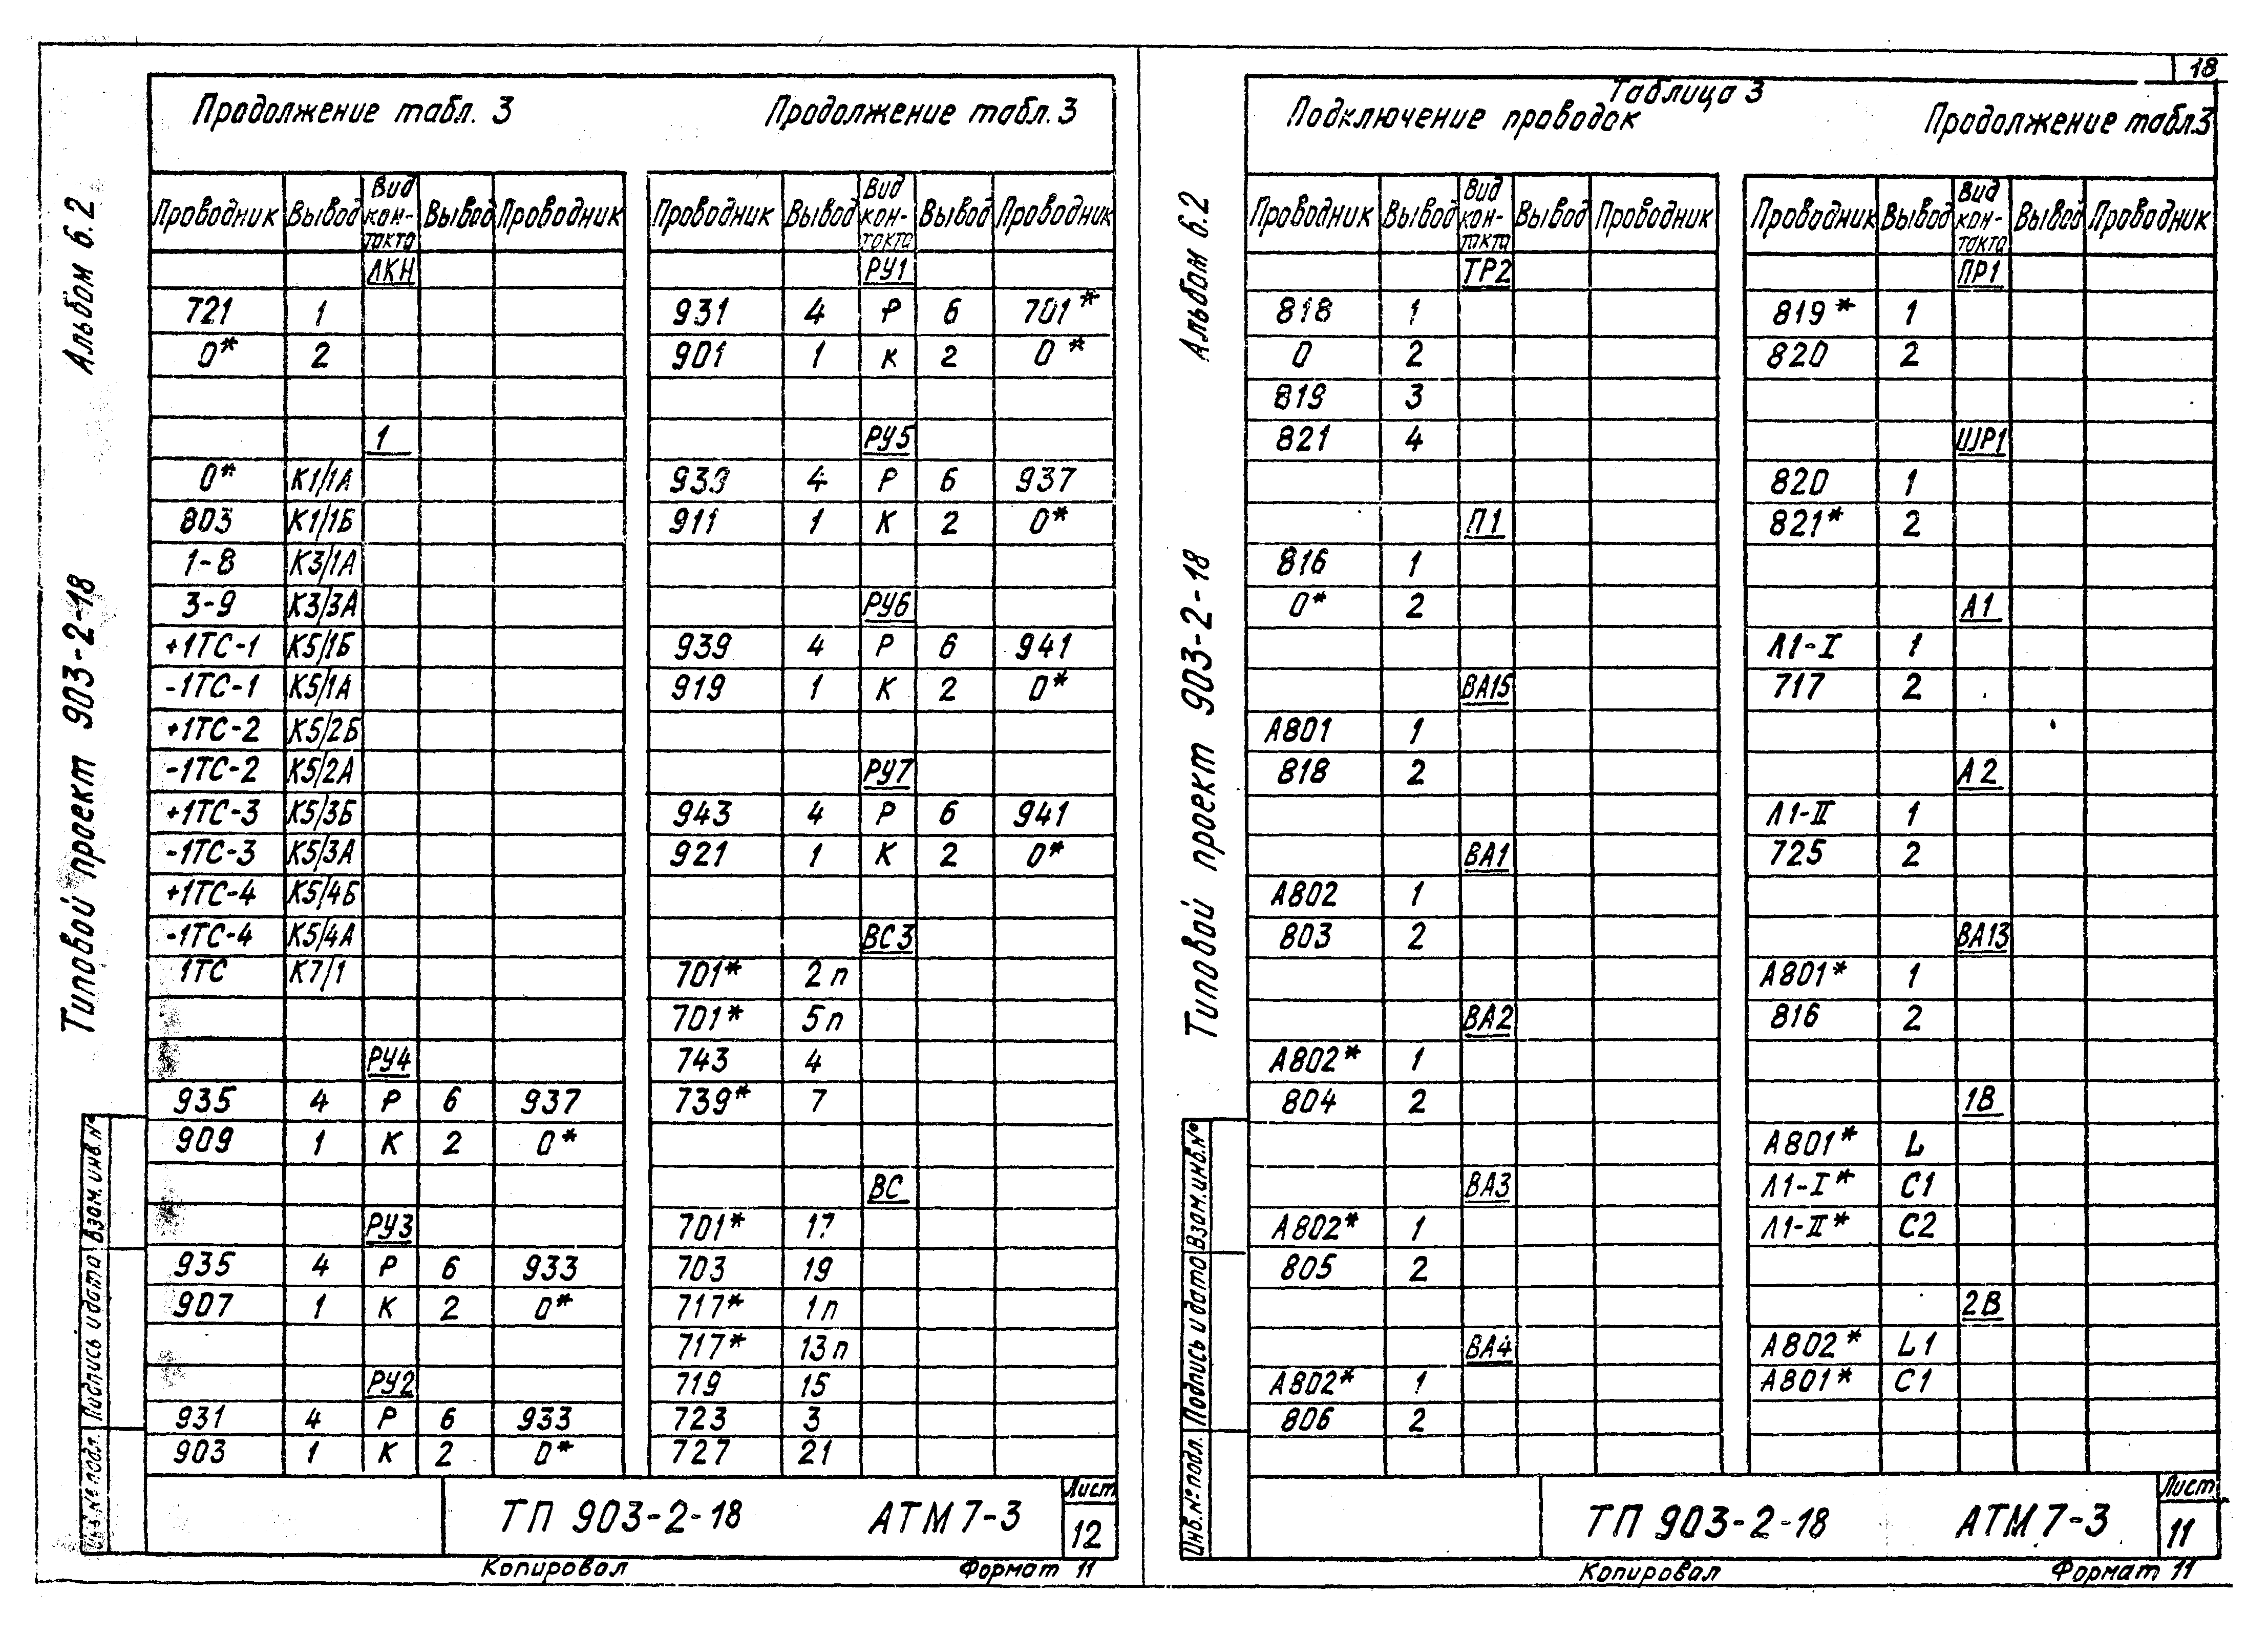 Альбом 6.2
Типовой проект 903-2-18
Взам.инв.№
Подпись и дата
Инв.№ подл.
Продолжение табл. 3
Проводник Вывод Вид кон-такта Вывод Проводник
ЛКН
721 1
0* 2
1
0* К1/1А
803 К1/1Б
1-8 К3/1А
3-9 К3/3А
+1ТС-1 К5/1Б
-1ТС-1 К5/1А
+1ТС-2 К5/2Б
-1ТС-2 К5/2А
+1ТС-3 К5/3Б
-1ТС-3 К5/3А
+1ТС-4 К5/4Б
-1ТС-4 К5/4А
1ТС К7/1
РУ4
935 4 Р 6 937
909 1 К 2 0*
РУ3
935 4 Р 6 933
907 1 К 2 0*
РУ2
931 4 Р 6 933
903 1 К 2 0*
Продолжение табл. 3
Проводник Вывод Вид кон-такта Вывод Проводник
РУ1
931 4 Р 6 701*
901 1 К 2 0*
РУ5
939 4 Р 6 937
911 1 К 2 0*
РУ6
939 4 Р 6 941
919 1 К 2 0*
РУ7
943 4 Р 6 941
921 1 К 2 0*
ВС3
701* 2п
701* 5п
743 4
739* 7
ВС
701* 17
703 19
717* 1п
717* 13п
719 15
723 3
727 21
ТП 903-2-18 АТМ 7-3
Лист
12
Копировал Формат 11
18
Альбом 6.2
Типовой проект 903-2-18
Взам.инв.№
Подпись и дата
Инв.№ подл.
Таблица 3
Подключение проводок
Проводник Вывод Вид кон-такта Вывод Проводник
ТР2
818 1
0 2
819 3
821 4
П1
816 1
0* 2
ВА15
А801 1
818 2
ВА1
А802 1
803 2
ВА2
А802* 1
804 2
ВА3
А802* 1
805 2
ВА4
А802* 1
806 2
Продолжение табл.3
Проводник Вывод Вид кон-такта Вывод Проводник
ПР1
819* 1
820 2
ШР1
820 1
821* 2
А1
Л1-I 1
717 2
А2
Л1-II 1
725 2
ВА13
А801* 1
816 2
1В
А801* L
Л1-I* С1
Л1-II* С2
2В
А802* L1
А801* С1
ТП 903-2-18 АТМ 7-3
Лист
11
Копировал Формат 11